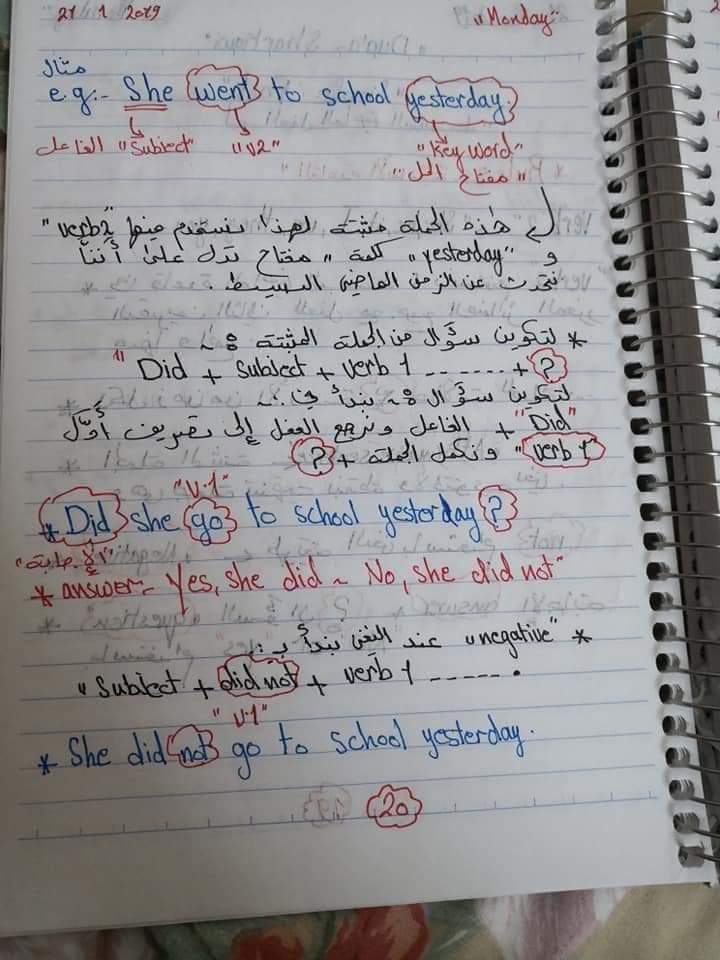 21 1 2019 "Monday"
مثال
e.g:- She went to school yesterday.
الفاعل "Subject" "V2" "Key word"
"مفتاح الحل"
هذه الجملة مثبتة لهذا نستخدم فيها "verb2"
و "yesterday" كلمة " مفتاح تدل على أننا
نتحدث عن الزمن الماضي البسيط .
* لتكوين سؤال من الجملة المثبتة :~
" Did + subject + verb 1 ...... + ?
لتكوين سؤال :~ نبدأ في :~
"Did" + الفاعل ونرجع الفعل إلى تصريف أول
"verb 1" ونكمل الجملة + ?
"V.1"
* Did she go to school yesterday ?
"الإجابة"
* answer:- Yes, she did ~ No, she did not"
* "negative" عند النفي نبدأ بـ :~
"Subject + did not + verb 1 ------ .
"V.1"
* She did not go to school yesterday.
20